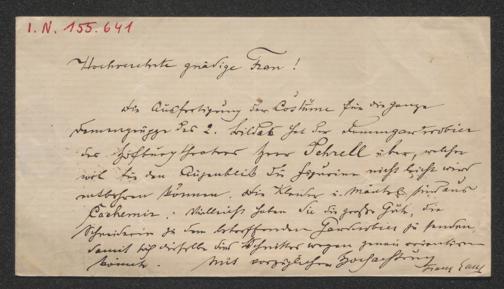 I.N. 155.641
Hochverehrte gnädige Frau!
Die Ausfertigung der Costüme für die ganze
Damengruppe des 2. Bildes hat der Damengarderobier
des Hofburgtheaters Herr Schrell über, welcher
wol für den Augenblick die Figurinen nicht leicht wird
entbehren können. Die Kleider u. Mäntel sind aus
Cachemir. Vielleicht haben Sie die große Güte, die
Schneiderin zu dem betreffenden Garderobier zu senden,
damit sich dieselbe des Schnittes wegen genau orientieren
könnte. Mit vorzüglicher Hochachtung
Franz Gaul